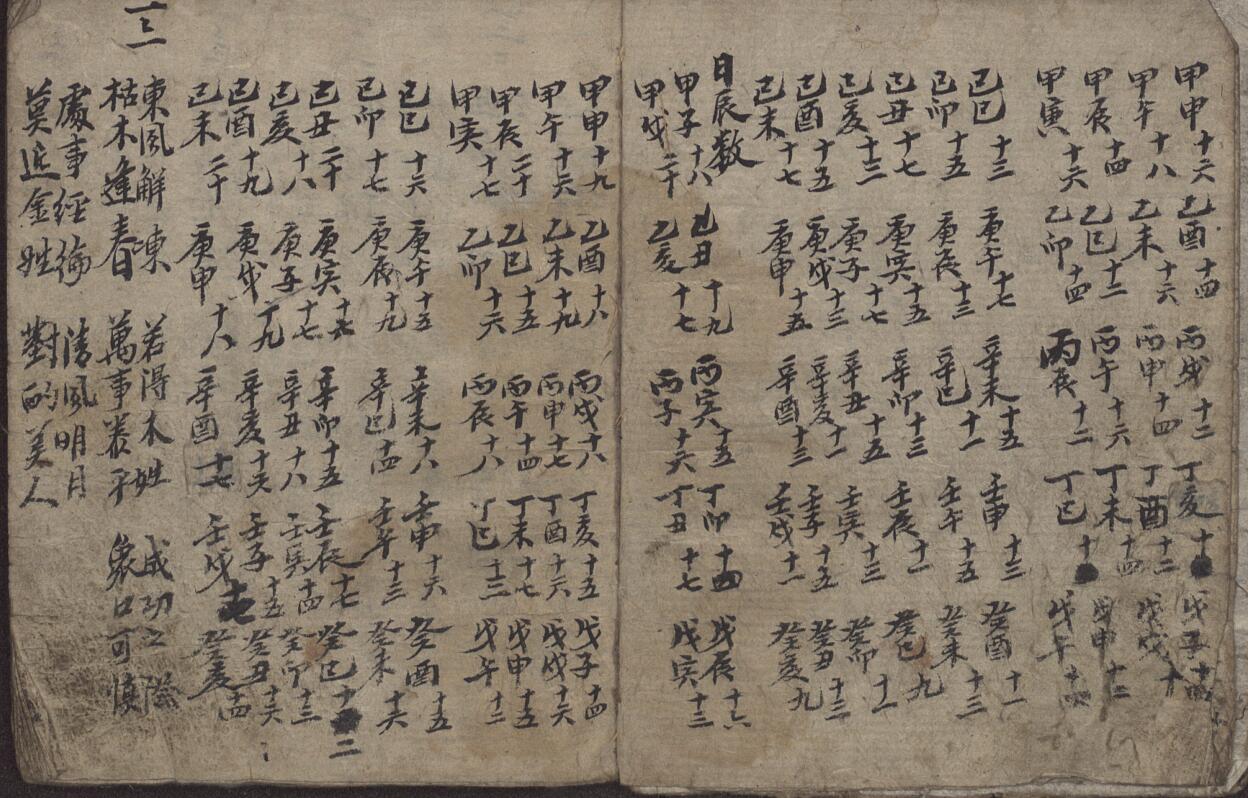 甲申十六 乙酉十四 丙戌十二 丁亥十 戊子十四
甲午十八 乙未十六 丙申十四 丁酉十二 戊戌十
甲辰十四 乙巳十二 丙午十六 丁未十四 戊申十二
甲寅十六 乙卯十四 丙辰十二 丁巳十 戊午十四
己巳十三 庚午十七 辛未十五 壬申十三 癸酉十一
己卯十五 庚辰十三 辛巳十一 壬午十五 癸未十三
己丑十七 庚寅十五 辛卯十三 壬辰十一 癸巳九
己亥十三 庚子十七 辛丑十五 壬寅十三 癸卯十一
己酉十五 庚戌十三 辛亥十一 壬子十五 癸丑十三
己未十七 庚申十五 辛酉十三 壬戌十一 癸亥九
日辰數
甲子十八 乙丑十九 丙寅十五 丁卯十四 戊辰十六
甲戌二十 乙亥十七 丙子十六 丁丑十七 戊寅十三
甲申十九 乙酉十八 丙戌十八 丁亥十五 戊子十四
甲午十六 乙未十九 丙申十七 丁酉十六 戊戌十六
甲辰二十 乙巳十五 丙午十四 丁未十七 戊申十五
甲寅十七 乙卯十六 丙辰十八 丁巳十三 戊午十二
己巳十六 庚午十五 辛未十八 壬申十六 癸酉十五
己卯十七 庚辰十九 辛巳十四 壬午十三 癸未十六
己丑二十 庚寅十六 辛卯十五 壬辰十七 癸巳十二
己亥十八 庚子十七 辛丑十八 壬寅十四 癸卯十三
己酉十九 庚戌十九 辛亥十六 壬子十五 癸丑十六
己未二十 庚申十八 辛酉十七 壬戌十七 癸亥十四
一三
東風解凍 若得木姓 成功之
枯木逢春 萬事 衆口可慎
處事經綸 清風明月
莫近金姓 對的美人